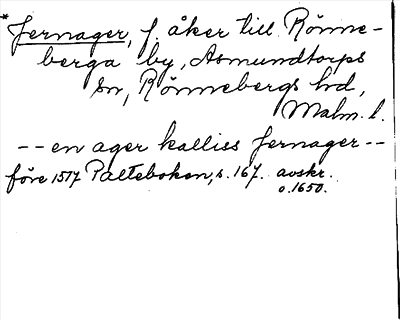 * Jernager, f. åker till Rönne-
berga by, Asmundtorps
sn, Rönnebergs hd,
Malm. l.
-- en ager kalliss Jernager --
före 1517 Paltebokon, s. 167. avskr.
o. 1650.